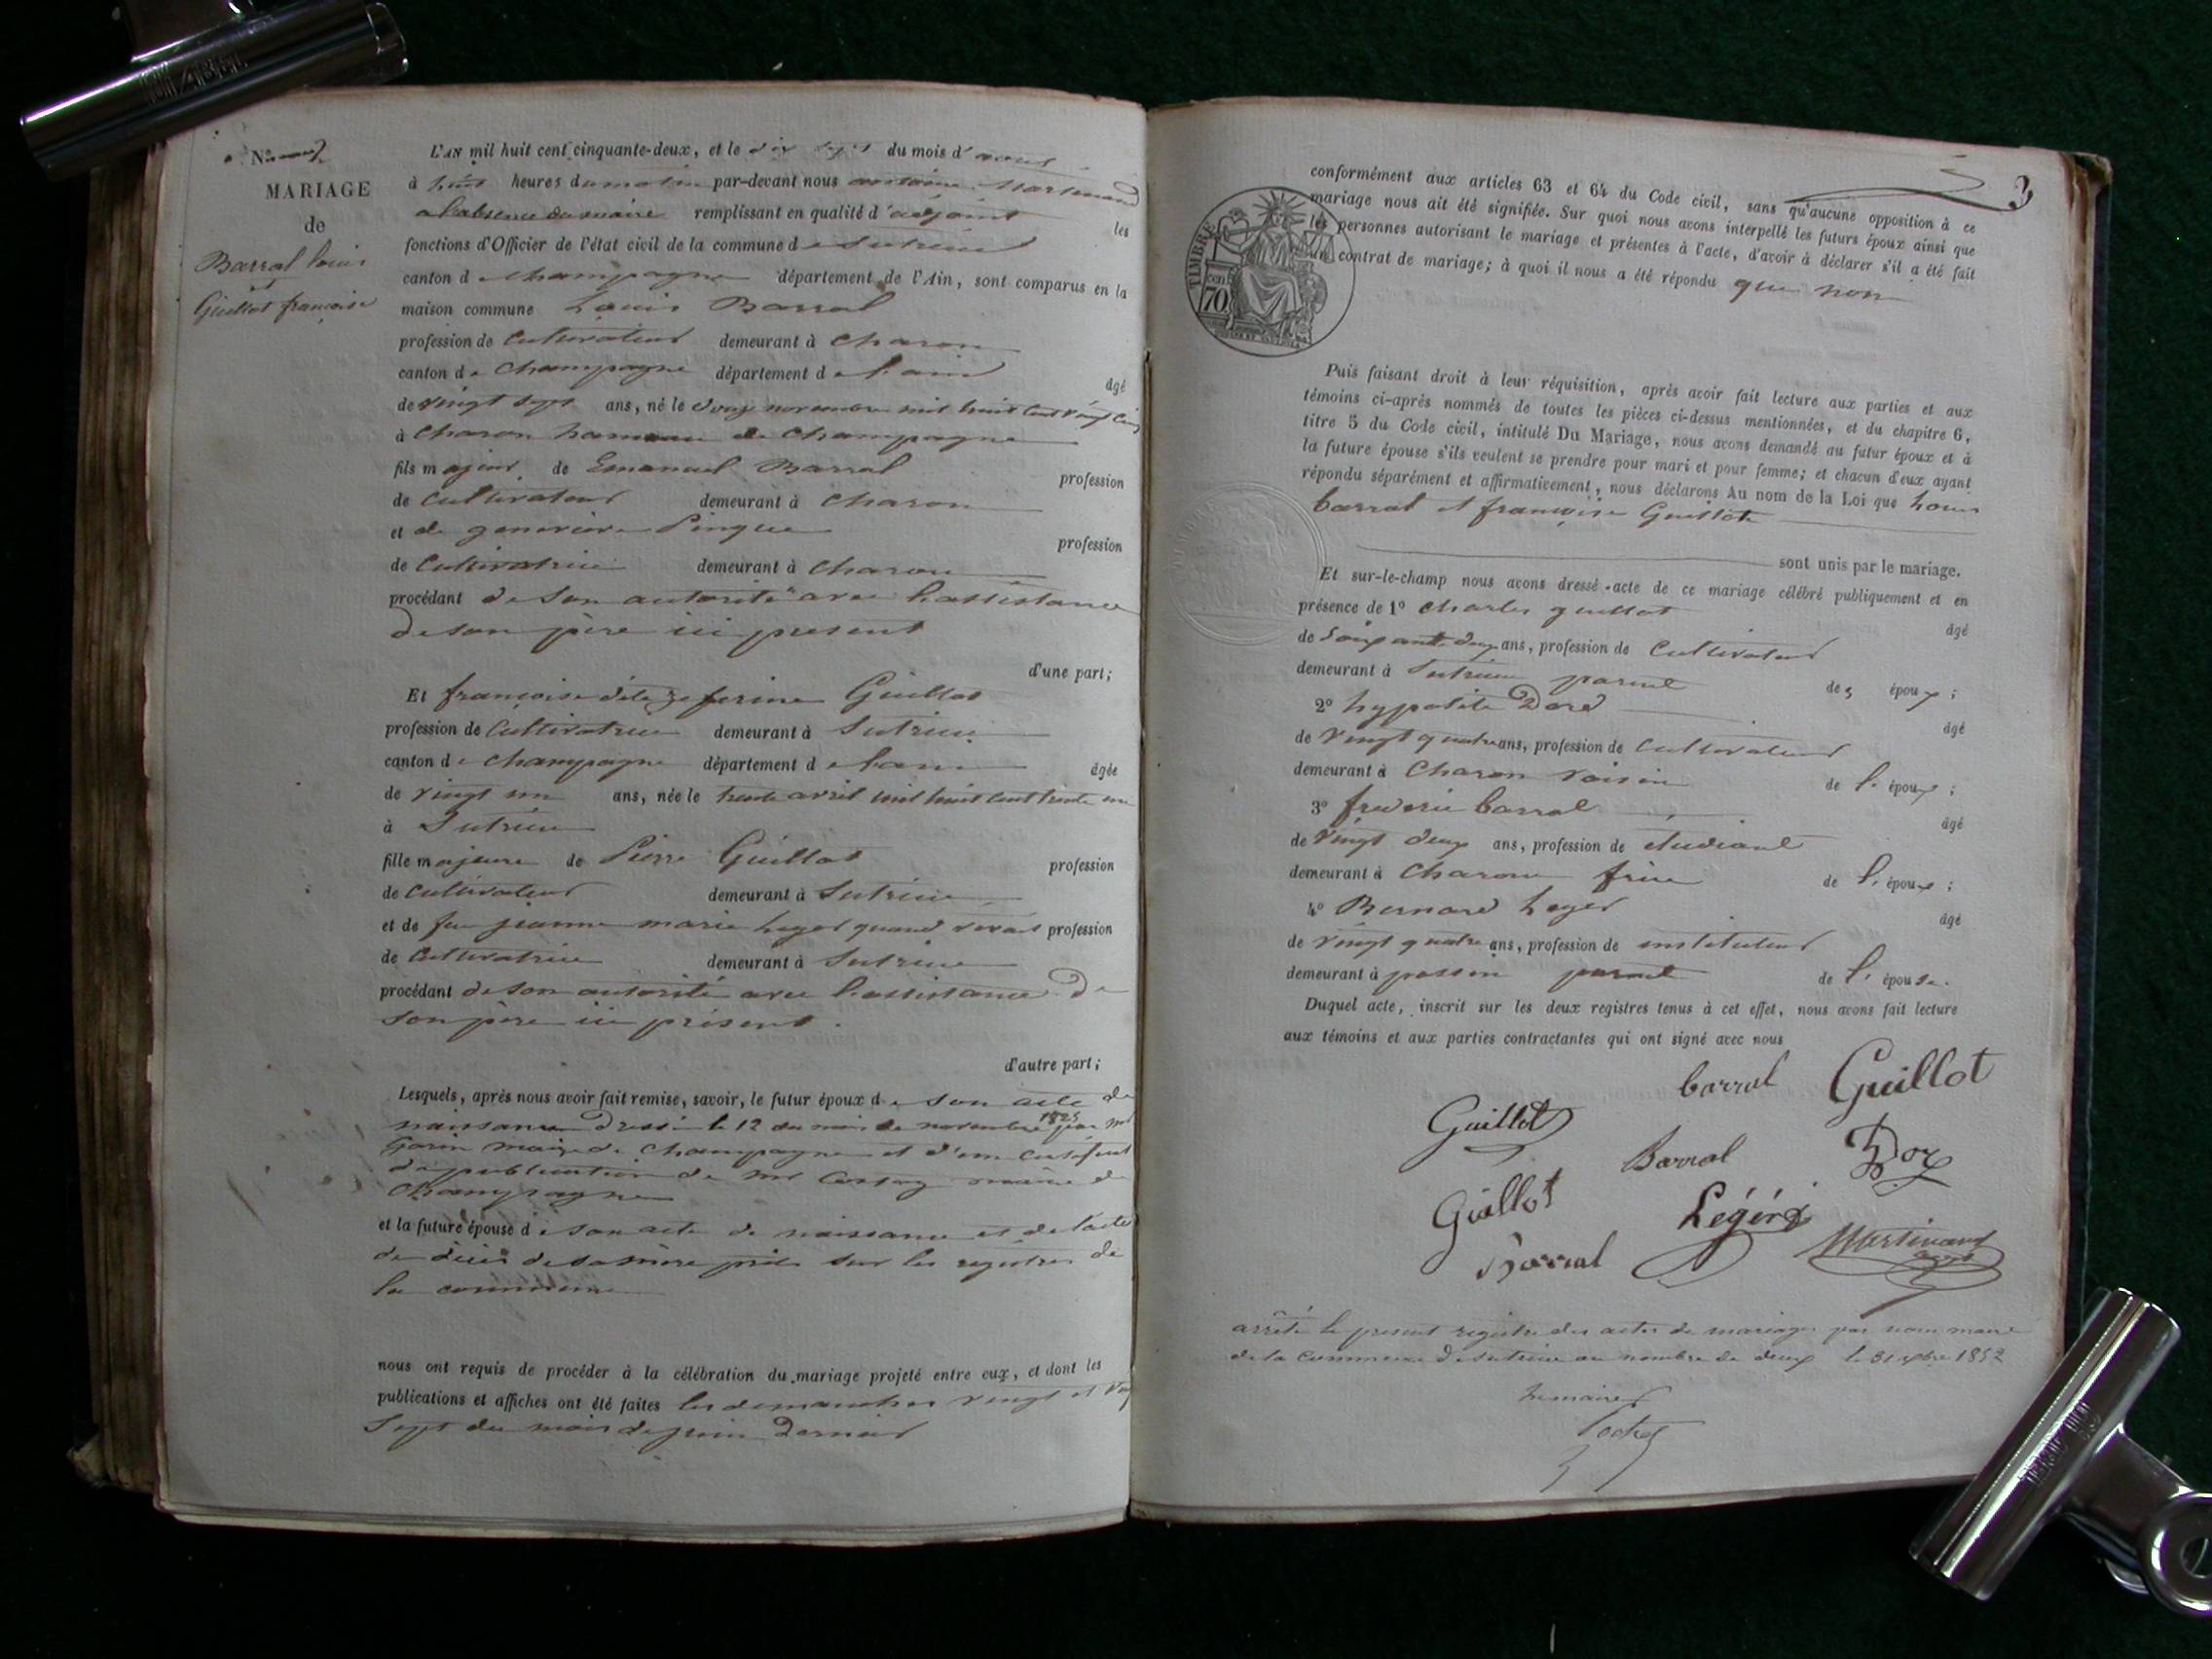 N° 2
MARIAGE
de
Barral louis
et
Guillot françoise
L'AN mil huit cent cinquante-deux, et le dix sept du mois d'aout
à huit heures du matin par-devant nous antoine Martinand
a l'absence du maire remplissant en qualité d'adjoint les
fonctions d'Officier de l'état civil de la commune de Sutrieu
canton de champagne département de l'Ain, sont comparus en la
maison commune Louis Barral
profession de Cultivateur demeurant à charon
canton de Champagne département de l'ain âgé
de vingt sept ans, né le douze novembre mil huit cent vingt cinq
à charon hameau de Champagne
fils majeur de Emanuel Barral profession
de Cultivateur demeurant à Charon
et de genevieve Pingue profession
de Cultivatrice demeurant à charon
procédant de son autorité avec l'assistance
de son père ici present
d'une part;
Et françoise dite zeferine Guillot
profession de Cultivatrice demeurant à Sutrieu
canton de champagne département de l'ain âgée
de vingt un ans, née le trente avril mil huit cent trente un
à Sutrieu
fille majeure de Pierre Guillot profession
de cultivateur demeurant à Sutrieu
et de feu jeanne marie quand vivait profession
de Cultivatrice demeurant à Sutrieu
procédant de son autorité avec l'assistance de
son père ici présent.
d'autre part;
Lesquels, après nous avoir fait remise, savoir, le futur époux de son acte de
naissance dressé le 12 du mois de novembre 1825 par mr
maire de Champagne et d'un certificat
de publication de mr maire de
Champagne
et la future épouse de son acte de naissance et de l'acte
de décès de sa mère pris sur les registres de
la commune
nous ont requis de procéder à la célébration du mariage projeté entre eux, et dont les
publications et affiches ont été faites les dimanches vingt et vingt
Sept du mois de juin Dernier
3
TIMBRE
70 cent
conformément aux articles 63 et 64 du Code civil, sans qu'aucune opposition à ce
mariage nous ait été signifiée. Sur quoi nous avons interpellé les futurs époux ainsi que
les personnes autorisant le mariage et présentes à l'acte, d'avoir à déclarer s'il a été fait
un contrat de mariage; à quoi il nous a été répondu que non
Puis faisant droit à leur réquisition, après avoir fait lecture aux parties et aux
témoins ci-après nommés de toutes les pièces ci-dessus mentionnées, et du chapitre 6,
titre 5 du Code civil, intitulé Du Mariage, nous avons demandé au futur époux et à
la future épouse s'ils veulent se prendre pour mari et pour femme; et chacun d'eux ayant
répondu séparément et affirmativement, nous déclarons Au nom de la Loi que Louis
barral et françoise Guillot
sont unis par le mariage.
Et sur-le-champ nous avons dressé acte de ce mariage célébré publiquement et en
présence de 1° charles guillot âgé
de soixante deux ans, profession de Cultivateur
demeurant à Sutrieu parent des époux;
2° hypolite Doré âgé
de vingt quatre ans, profession de cultivateur
demeurant à Charon voisin de l'époux;
3° frederic barral âgé
de vingt deux ans, profession de etudiant
demeurant à Charon frère de l'époux;
4° Bernard âgé
de vingt quatre ans, profession de instituteur
demeurant à possin parent de l'épouse.
Duquel acte, inscrit sur les deux registres tenus à cet effet, nous avons fait lecture
aux témoins et aux parties contractantes qui ont signé avec nous
barral Guillot
Guillot
Barral
Guillot
Barral Martinand
arrêté le present registre des actes de mariage par nous maire
de la commune de sutrieu au nombre de deux le 31 xbre 1852
le maire